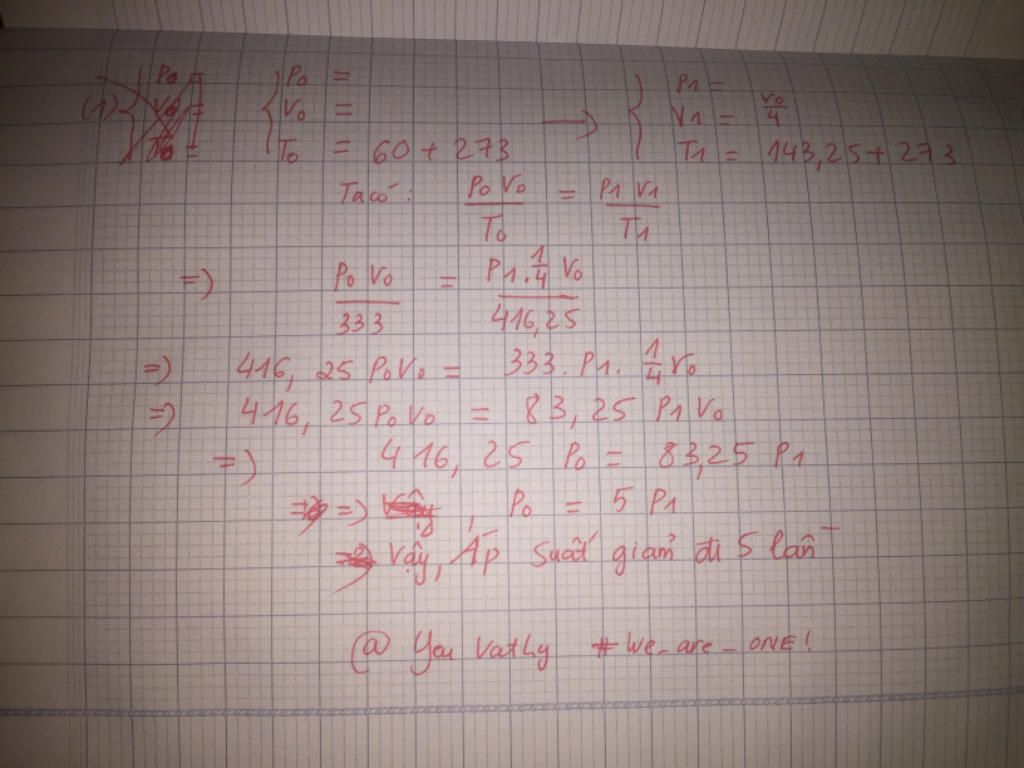 (1) { P₀ = { P₀ = → { P1 =
V₀ = V₀ = V1 = V₀/4
T₀ = T₀ = 60 + 273 T1 = 143,25 + 273
Ta có: P₀ V₀ / T₀ = P1 V1 / T1
=) P₀ V₀ / 333 = P1 . 1/4 V₀ / 416,25
=) 416,25 P₀V₀ = 333. P1. 1/4 V₀
=) 416,25 P₀V₀ = 83,25 P1 V₀
=) 416,25 P₀ = 83,25 P1
=) P₀ = 5 P1
Vậy, Áp suất giảm đi 5 lần
@ You Vathy # we_are_ONE!